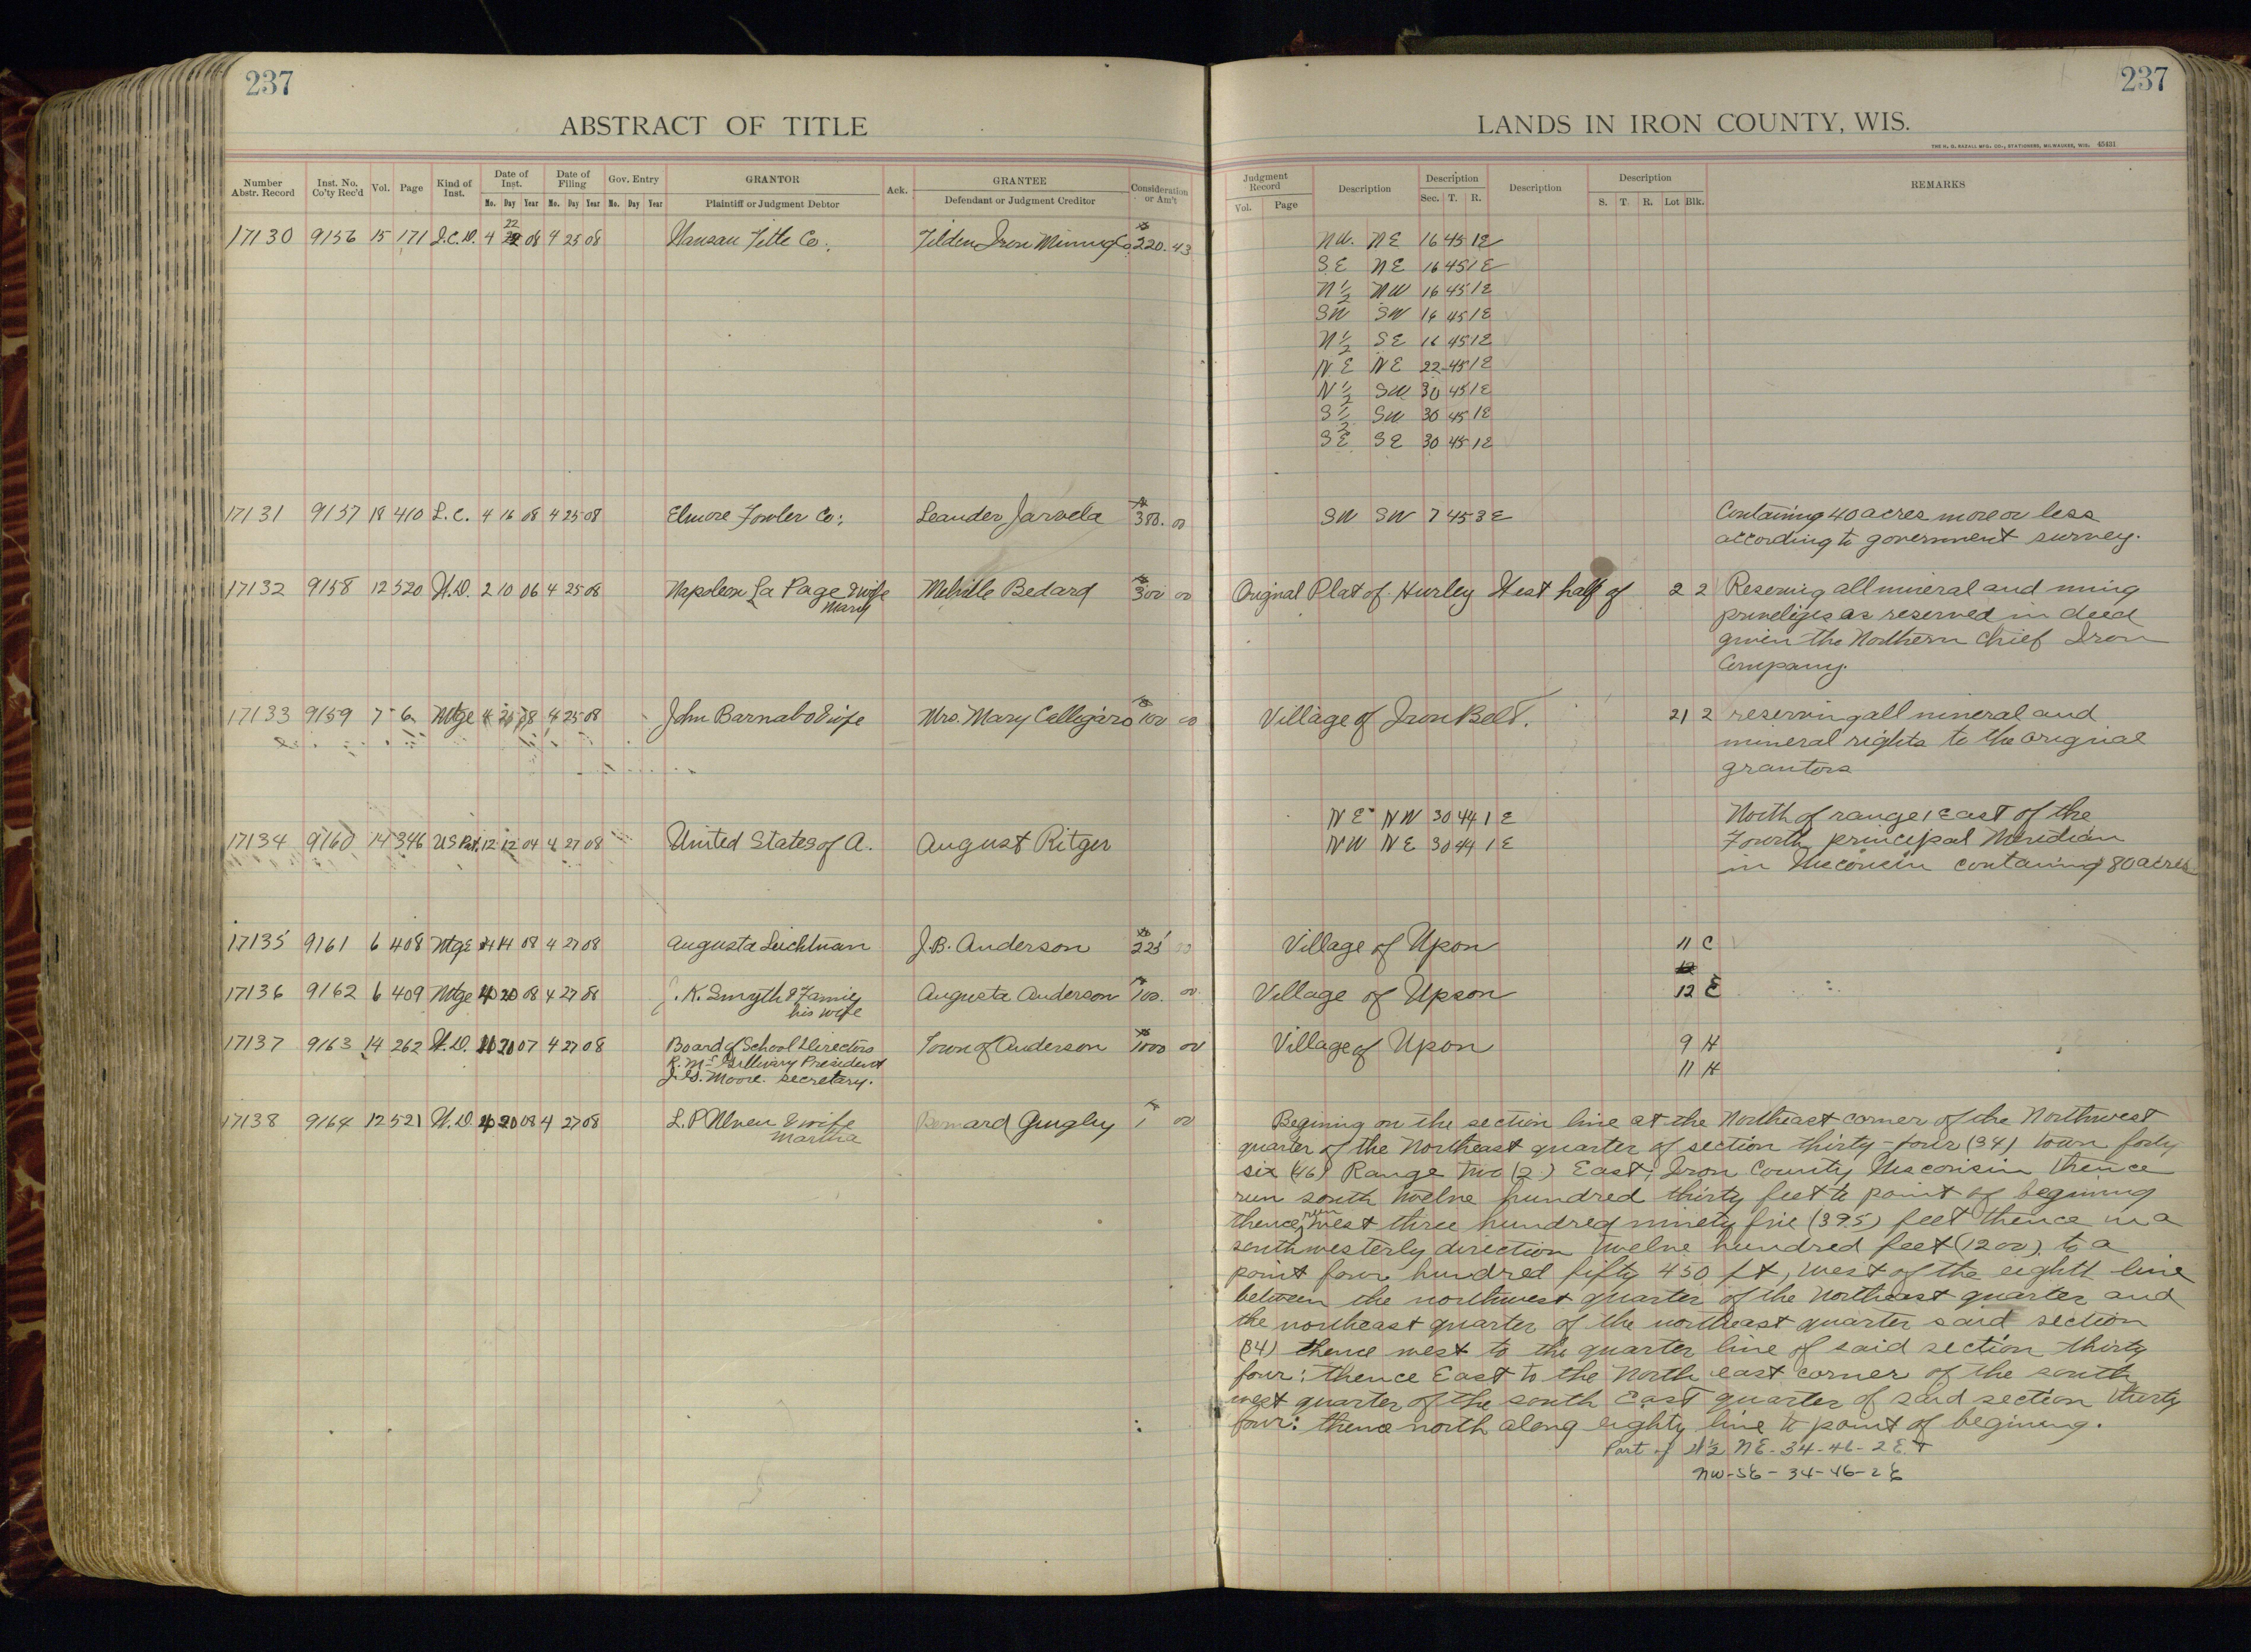 237
ABSTRACT OF TITLE
Number Abstr. Record Inst. No. Co'ty Rec'd Vol. Page Kind of Inst. Date of Inst. Mo. Day Year Date of Filing Mo. Day Year Gov. Entry Mo. Day Year GRANTOR Plaintiff or Judgment Debtor Ack. GRANTEE Defendant or Judgment Creditor Consideration or Am't
17130 9156 15 171 4 22 08 4 25 08 Title Co. Tilden Iron Mining Co 220. 43
17131 9157 18 410 L. C. 4 16 08 4 25 08 Elmore Fowler Co. Leander Jarvela 380. 00
17132 9158 12 520 W.D. 2 10 06 4 25 08 Napoleon La Page & wife Bedard 300 00
Mary
17133 9159 7 6 Mtge 4 08 4 25 08 John Barnabo & wife Mrs. Mary Callegaro 100 00
17134 9160 14 346 US Pat. 12 12 04 4 27 08 United States of A. August Ritger
17135 9161 6 408 Mtge 4 14 08 4 27 08 Augusta J.B. Anderson 225 00
17136 9162 6 409 Mtge 4 20 08 4 27 08 K. Smyth & Augusta Anderson 100. 00
his wife
17137 9163 14 262 W.D. 20 07 4 27 08 Board of School Directors Town of Anderson 1000 00
President
Moore. secretary.
17138 9164 12 521 W.D. 4 20 08 4 27 08 L. P. & wife 1 00
Martha
237
LANDS IN IRON COUNTY, WIS.
THE H. G. RAZALL MFG. CO., STATIONERS, MILWAUKEE, WIS. 45431
Judgment Record Vol. Page Description Description Sec. T. R. Description Description S. T. R. Lot Blk. REMARKS
NW. NE 16 45 1E
SE NE 16 45 1E
N 1/2 NW 16 45 1E
SW SW 16 45 1E
N 1/2 SE 16 45 1E
NE NE 22 45 1E
N 1/2 SW 30 45 1E
S 1/2 SW 30 45 1E
SE SE 30 45 1E
SW SW 7 45 3 E Containing 40 acres more or less
according to government survey.
Original Plat of Hurley West half of 2 2 Reserving all mineral and
as reserved in deed
given the Northern Chief Iron
Company.
Village of Iron Belt. 21 2 reserving all mineral and
mineral rights to the original
grantors
NE NW 30 44 1 E North of range 1 East of the
NW NE 30 44 1 E Fourth principal Meridian
in Wisconsin containing 80 acres
Village of Upon 11 C
12
Village of Upson 12 E
Village of Upon 9 H
11 H
Begining on the section line at the Northeast corner of the Northwest
quarter of the Northeast quarter of section thirty-four (34) town forty
six (46) Range two (2) East, Iron County Wisconsin thence
run south twelve hundred thirty feet to point of begining
thence run west three hundred ninety five (395) feet thence in a
southwesterly direction twelve hundred feet (1200) to a
point four hundred fifty 450 ft, west of the eighth line
between the northwest quarter of the Northeast quarter and
the northeast quarter of the northeast quarter said section
(34) thence west to the quarter line of said section thirty
four: thence East to the North east corner of the south
west quarter of the south East quarter of said section thirty
four: thence north along eighty line to point of begining.
Part of W 1/2 NE - 34-46-2E. &
NW-SE - 34-46-2E